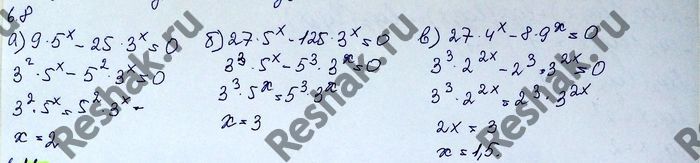 6.8
а) 9·5ˣ − 25·3ˣ = 0
3²·5ˣ − 5²·3ˣ = 0
3²·5ˣ = 5²·3ˣ −
x = 2
б) 27·5ˣ − 125·3ˣ = 0
3³·5ˣ − 5³·3ˣ = 0
3³·5ˣ = 5³·3ˣ
x = 3
в) 27·4ˣ − 8·9ˣ = 0
3³·2²ˣ − 2³·3²ˣ = 0
3³·2²ˣ = 2³·3²ˣ
2x = 3
x = 1,5
Reshak.ru
Reshak.ru
Reshak.ru